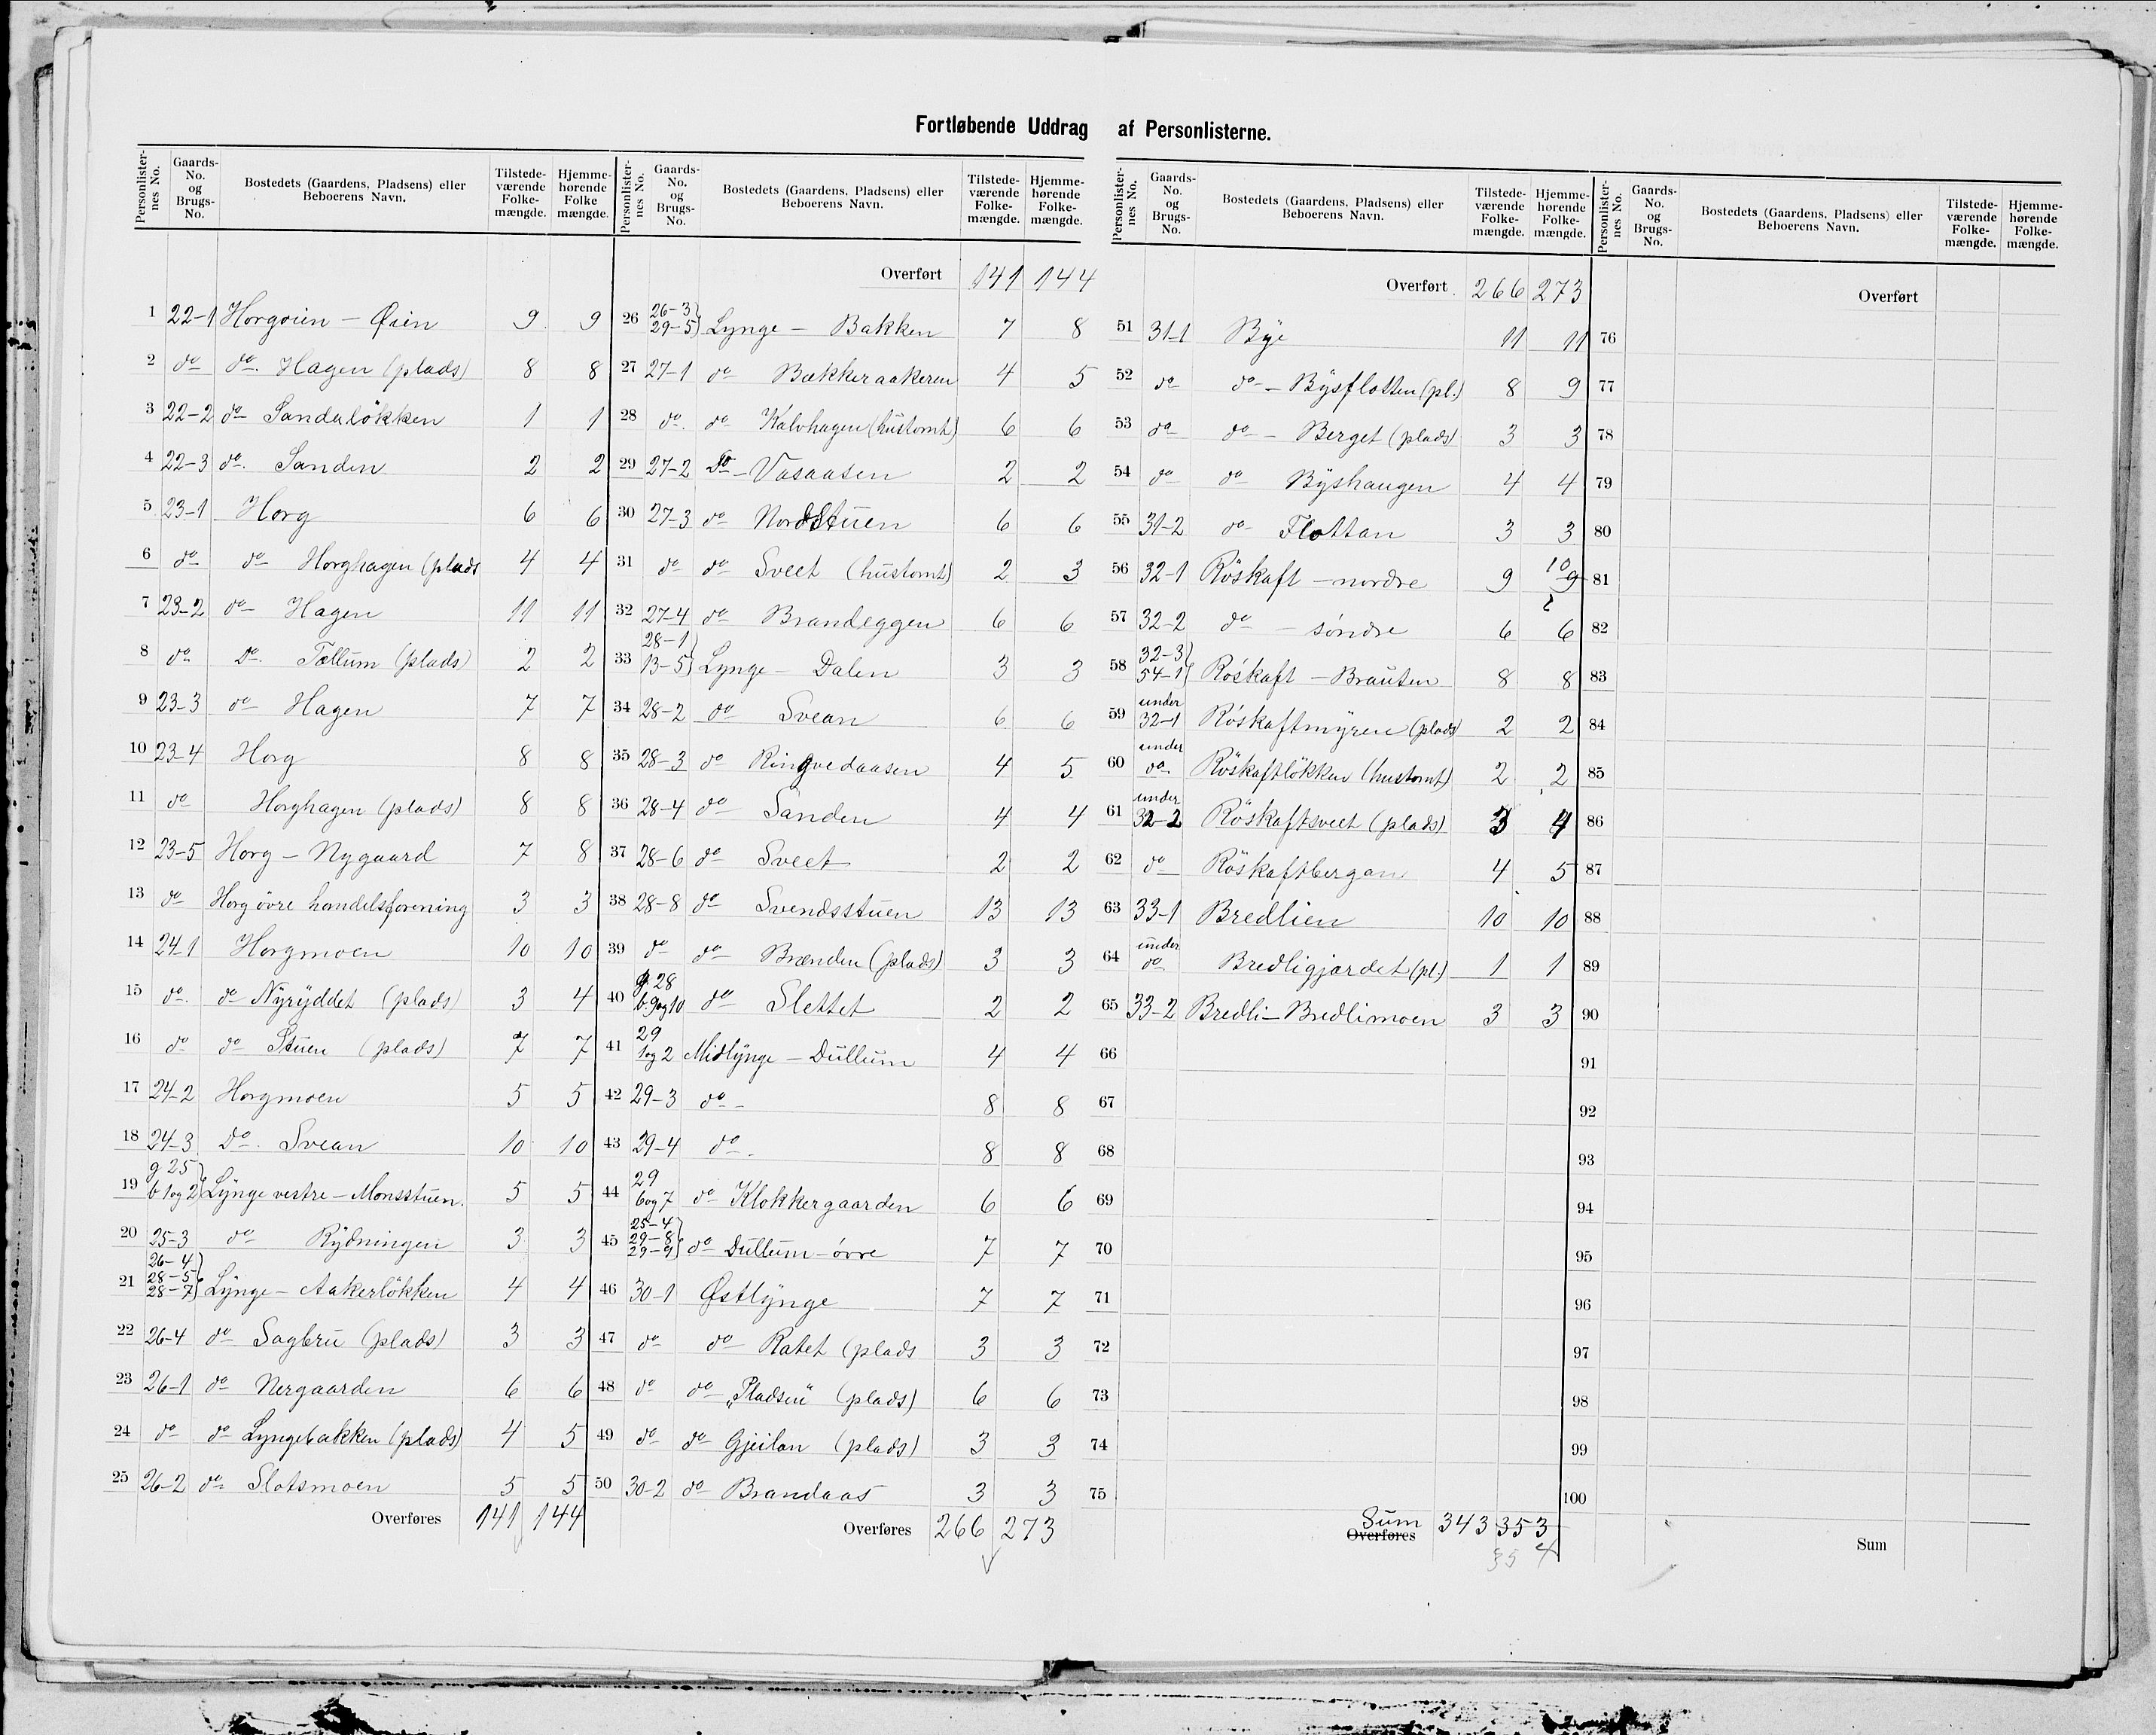 Fortløbende Uddrag af Personlisterne.
Personlisternes No. | Gaards-No. og Brugs-No. | Bostedets (Gaardens, Pladsens) eller Beboerens Navn. | Tilstedeværende Folkemængde. | Hjemmehørende Folkemængde.
1 22-1 Horgøien - Øien 9 9
2 do do. Hagen (plads) 8 8
3 22-2 do Sandaløkken 1 1
4 22-3 do. Sanden 2 2
5 23-1 Horg 6 6
6 do do Horghagen (plads 4 4
7 23-2 do Hagen 11 11
8 do Do. Tøllum (plads) 2 2
9 23-3 do Hagen 7 7
10 23-4 Horg 8 8
11 do Horghagen (plads) 8 8
12 23-5 Horg - Nygaard 7 8
13 do Horg övre handelsforening 3 3
14 24-1 Horgmoen 10 10
15 do. do Nyryddet (plads) 3 4
16 do do Stuen (plads) 7 7
17 24-2 Horgmoen 5 5
18 24-3 Do. Svean 10 10
19 g 25 b 1og 2 Lynge vestre - Monsstuen. 5 5
20 25-3 do Rydningen 3 3
21 26-4 28-5 28-7 Lynge - Aakerløkken 4 4
22 26-4 do Sagbru (plads) 3 3
23 26-1 do Nergaarden 6 6
24 do do Lyngebakken (plads) 4 5
25 26-2 do Slotsmoen 5 5
Overføres 141 144
Overført 141 144
26 26-3 29-5 Lynge - Bakken 7 8
27 27-1 do Bækkeraakeren 4 5
28 do. do Kalvhagen (hustomt) 6 6
29 27-2 Do - Vasaasen 2 2
30 27-3 do Nordstuen 6 6
31 do do Sveet (hustomt) 2 3
32 27-4 do Brandeggen 6 6
33 28-1 13-5 Lynge - Dalen 3 3
34 28-2 do Svean 6 6
35 28-3 do Ringvedaasen 4 5
36 28-4 do Sanden 4 4
37 28-6 do Sveet 2 2
38 28-8 do Svendsstuen 13 13
39 do do Brænden (plads) 3 3
40 g. 28 b. 9og10 do Slettet 2 2
41 29 1og 2 Midlynge - Dullum 4 4
42 29-3 do - 8 8
43 29-4 do. 8 8
44 29 6og 7 do Klokkergaarden 6 6
45 25-4 29-8 29-9 do Dullum - övre 7 7
46 30-1 Østlynge 7 7
47 do do Ratet (plads 3 3
48 do do „Pladsen“ (plads) 6 6
49 do do Gjeilan (plads) 3 3
50 30-2 do Brandaas 3 3
Overføres 266 273
Overført 266 273
51 31-1 Bye 11 11
52 do do - Bysflotten (pl.) 8 9
53 do do - Berget (plads) 3 3
54 do do Byshaugen 4 4
55 31-2 do Flottan 3 3
56 32-1 Röskaft - nordre 9 10 9
57 32-2 do - söndre 6 6
58 32-3 54-1 Röskaft - Brauten 8 8
59 under 32-1 Röskaftmyren (plads) 2 2
60 under do. Röskaftlökken (hustomt) 2 2
61 under 32-2 Röskaftsveet (plads) 3 4
62 do Röskaftbergan 4 5
63 33-1 Bredlien 10 10
64 under do Bredligjærdet (pl.) 1 1
65 33-2 Bredli - Bredlimoen 3 3
66
67
68
69
70
71
72
73
74
75
Sum Overføres 343 353
35 4
Overført
76
77
78
79
80
81
82
83
84
85
86
87
88
89
90
91
92
93
94
95
96
97
98
99
100
Sum